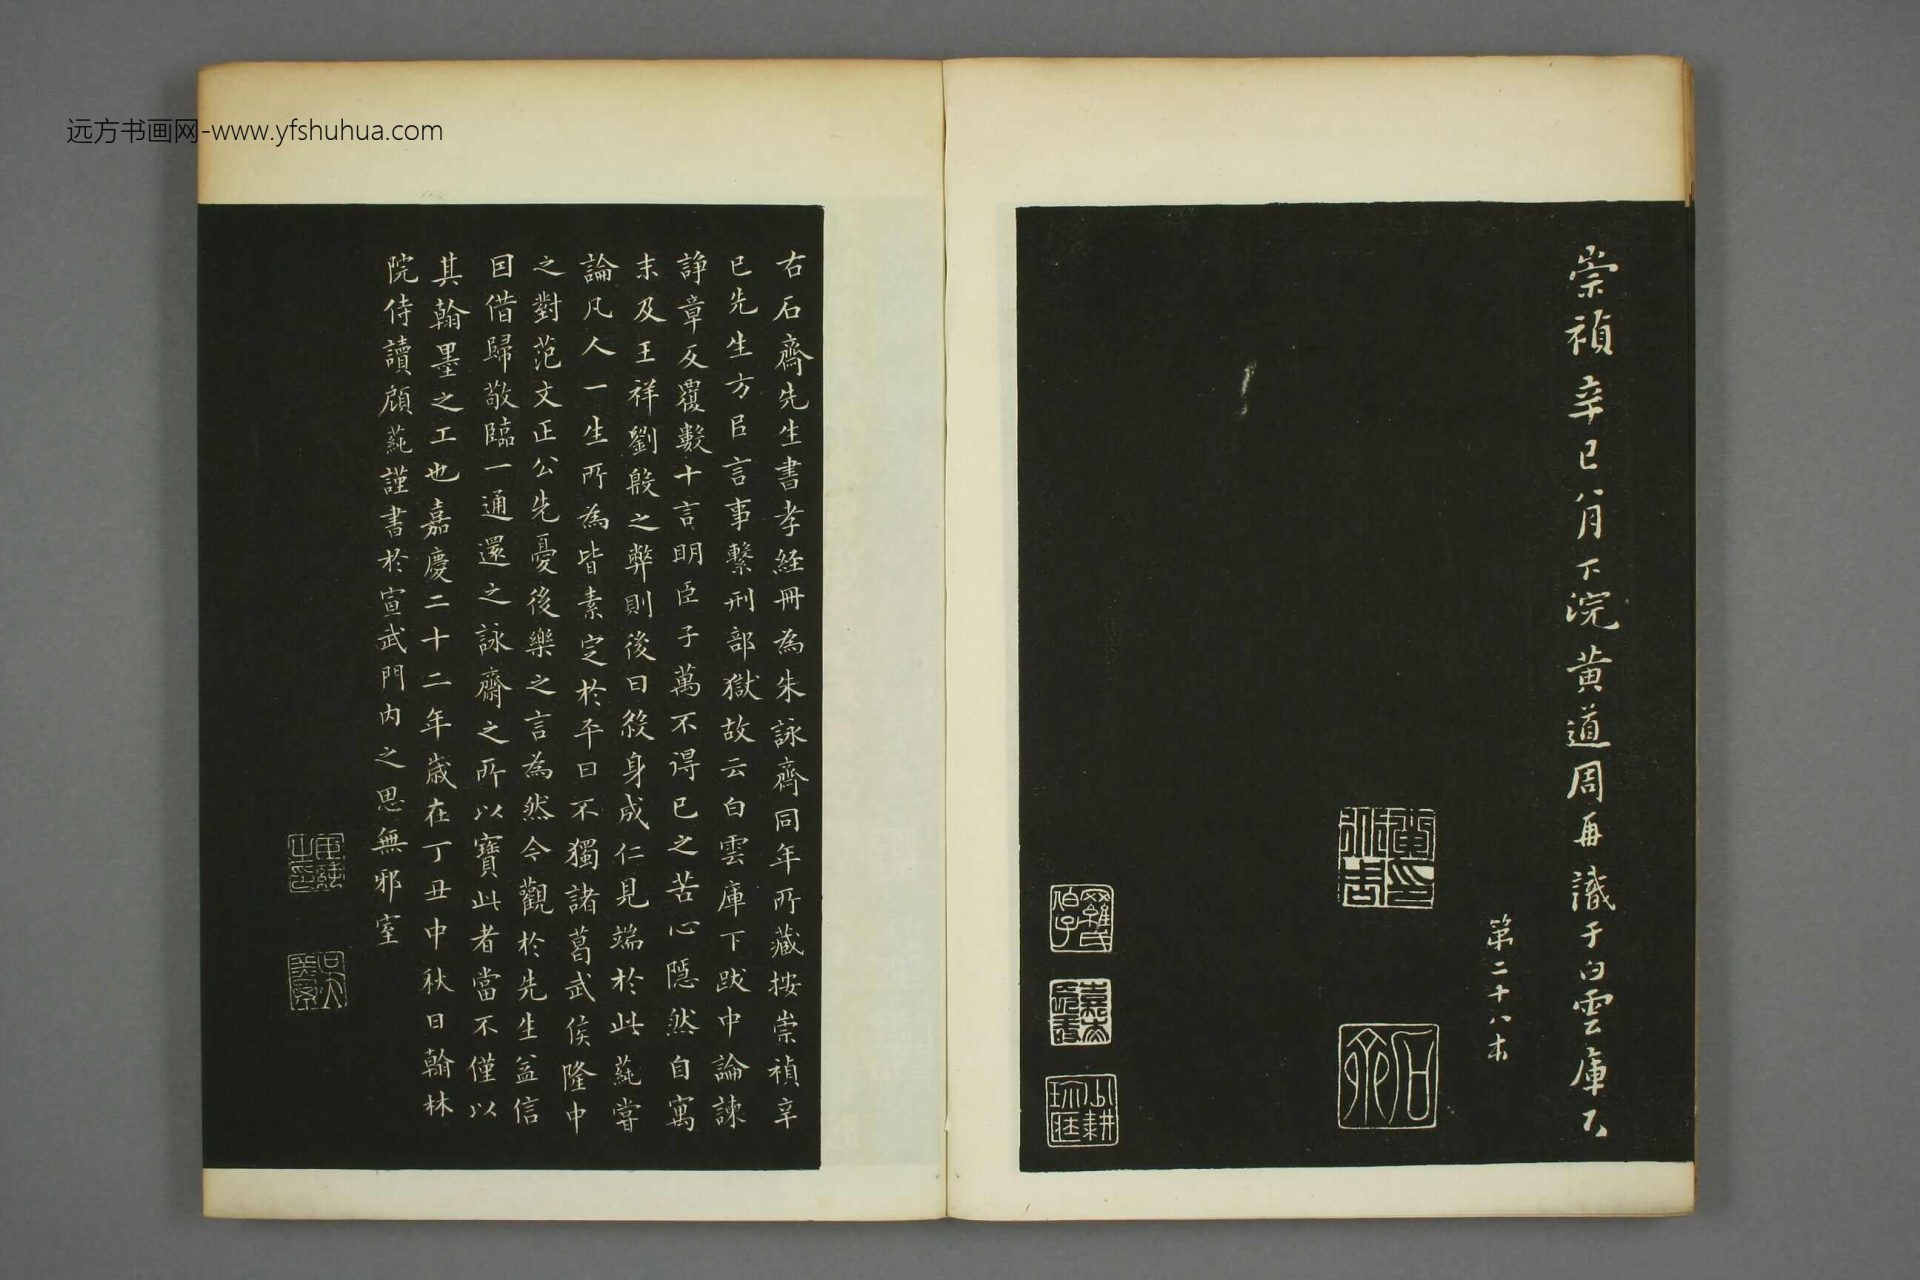 远方书画网-www.yfshuhua.com
崇禎辛巳八月下浣黄道周再識于白雲庫下
第二十八本
右石齋先生書孝經冊為朱詠齋同年所藏按崇禎辛
巳先生方㠯言事繫刑部獄故云白雲庫下跋中論諫
諍章反覆數十言明臣子萬不得已之苦心隱然自寓
末及王祥劉殷之弊則後日殺身成仁見端於此蒓嘗
論凡人一生所為皆素定於平日不獨諸葛武侯隆中
之對范文正公先憂後樂之言為然今觀於先生益信
因借歸敬臨一通還之詠齋之所以寶此者當不僅以
其翰墨之工也嘉慶二十二年歲在丁丑中秋日翰林
院侍讀顧蒓謹書於宣武門內之思無邪室